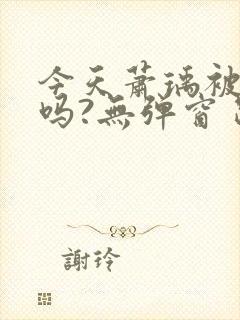 今天蕭瑀被
吗?無弹窗
謝玲